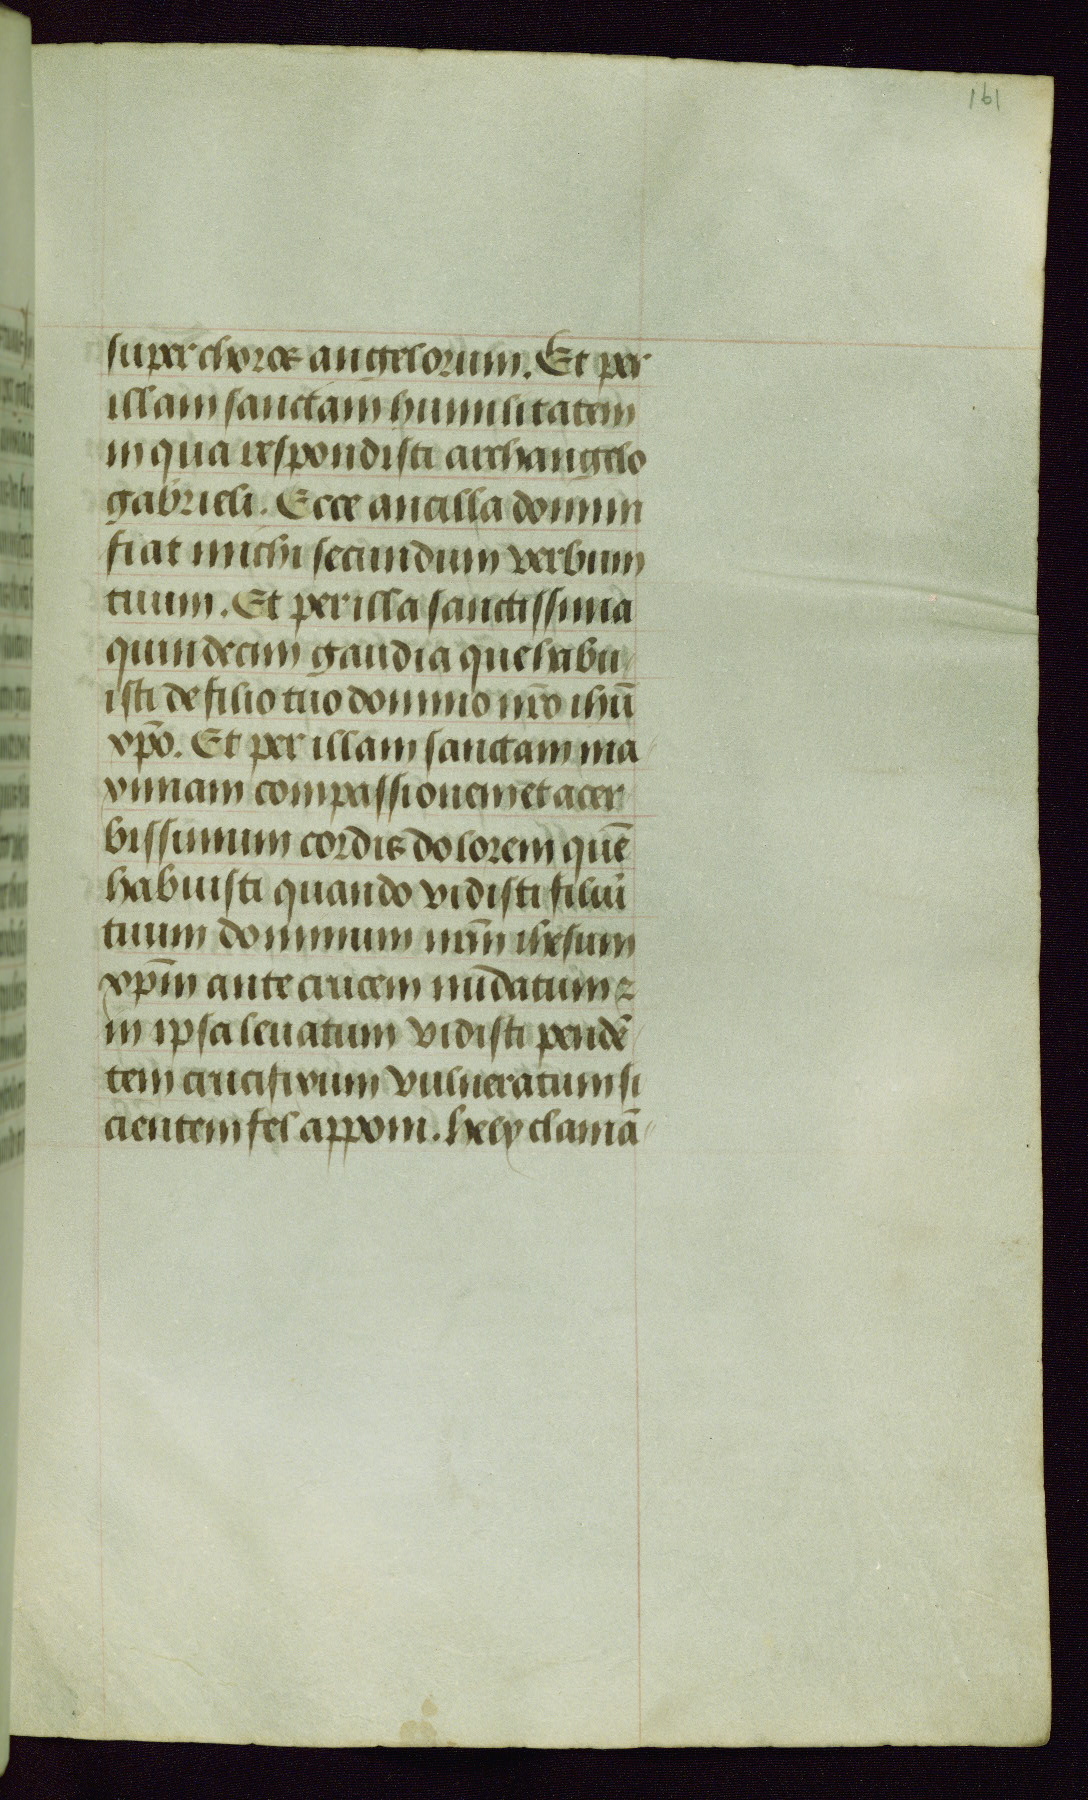 161
super choros angelorum. Et per
illam sanctam humilitatem
in qua respondisti archangelo
gabrieli. Ecce ancilla domini
fiat michi secundum verbum
tuum. Et per illa sanctissima
quindecim gaudia que habu
isti de filio tuo domino nr̄o ihū
xp̄o. Et per illam sanctam ma
ximam compassionem et acer
bissimum cordis dolorem quē
habuisti quando vidisti filiū
tuum dominum nr̄m ihesum
xp̄m ante crucem nūdatum ⁊
in ipsa leuatum vidisti pendē
tem crucifixum vulneratum si
cientem fel apponi. hely clamā